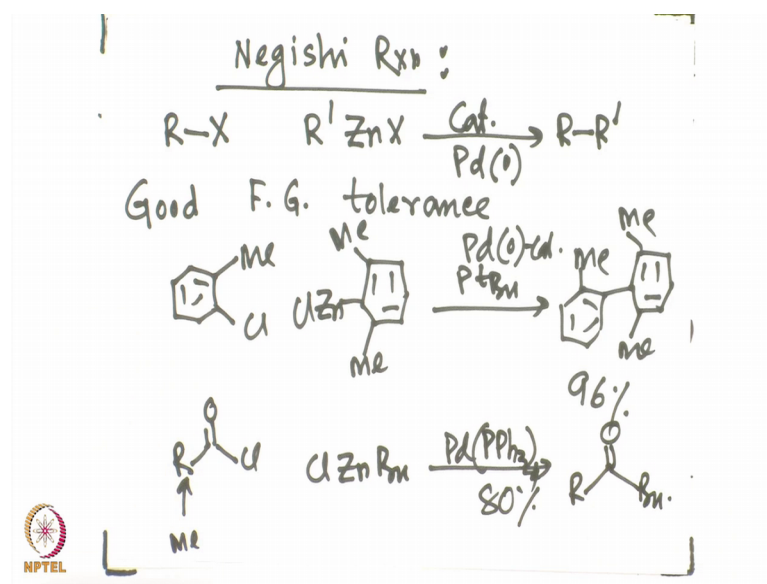 Negishi Rxn :
R-X R' ZnX Cat. Pd(0) R-R'
Good F.G. tolerance
Me Cl ClZn Me Me Pd(0)-Cat. PtBu Me Me Me
96%
R O Cl ClZnBu Pd(PPh3)4 80% R O Bu.
Me
NPTEL